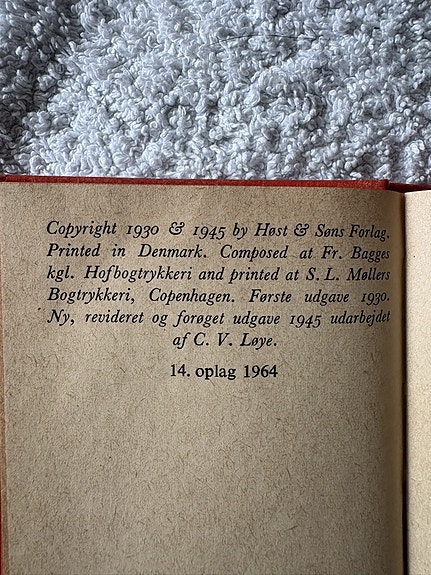 Copyright 1930 & 1945 by Høst & Søns Forlag.
Printed in Denmark. Composed at Fr. Bagges
kgl. Hofbogtrykkeri and printed at S. L. Møllers
Bogtrykkeri, Copenhagen. Første udgave 1930.
Ny, revideret og forøget udgave 1945 udarbejdet
af C. V. Løye.
14. oplag 1964